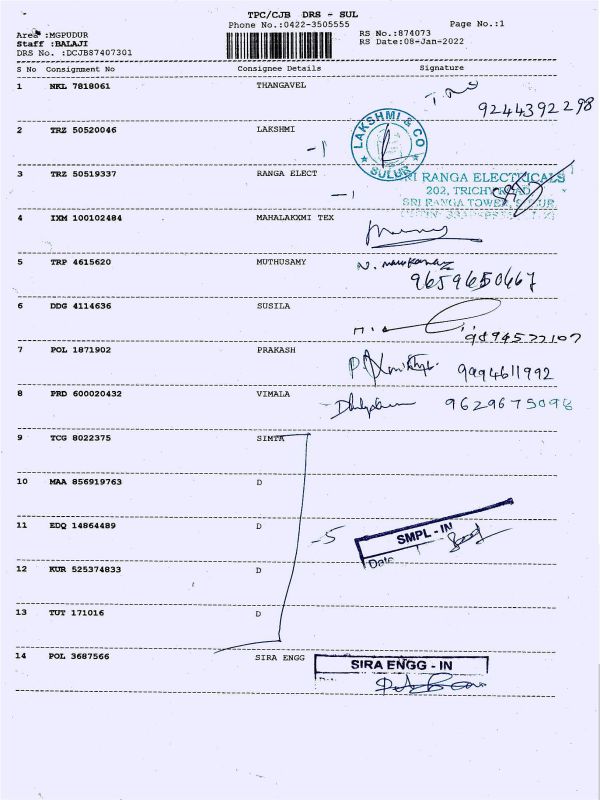 TPC/CJB DRS - SUL
Phone No.:0422-3505555
Page No.:1
Area :MGPUDUR
Staff :BALAJI
DRS No. :DCJB87407301
RS No.:874073
RS Date:08-Jan-2022
S No Consignment No Consignee Details Signature
1 NKL 7818061 THANGAVEL
9244392298
2 TRZ 50520046 LAKSHMI
-1
LAKSHMI & CO
SULUR
3 TRZ 50519337 RANGA ELECT
-1
SRI RANGA ELECTRICALS
202, TRICHY ROAD
SRI RANGA TOWER, SULUR
4 IXM 100102484 MAHALAXMI TEX
5 TRP 4615620 MUTHUSAMY
9659650667
6 DDG 4114636 SUSILA
9894522107
7 POL 1871902 PRAKASH
9994611992
8 PRD 600020432 VIMALA
9629675098
9 TCG 8022375 SIMTA
10 MAA 856919763 D
11 EDQ 14864489 D
-5
SMPL - IN
Date
12 KUR 525374833 D
13 TUT 171016 D
14 POL 3687566 SIRA ENGG
SIRA ENGG - IN